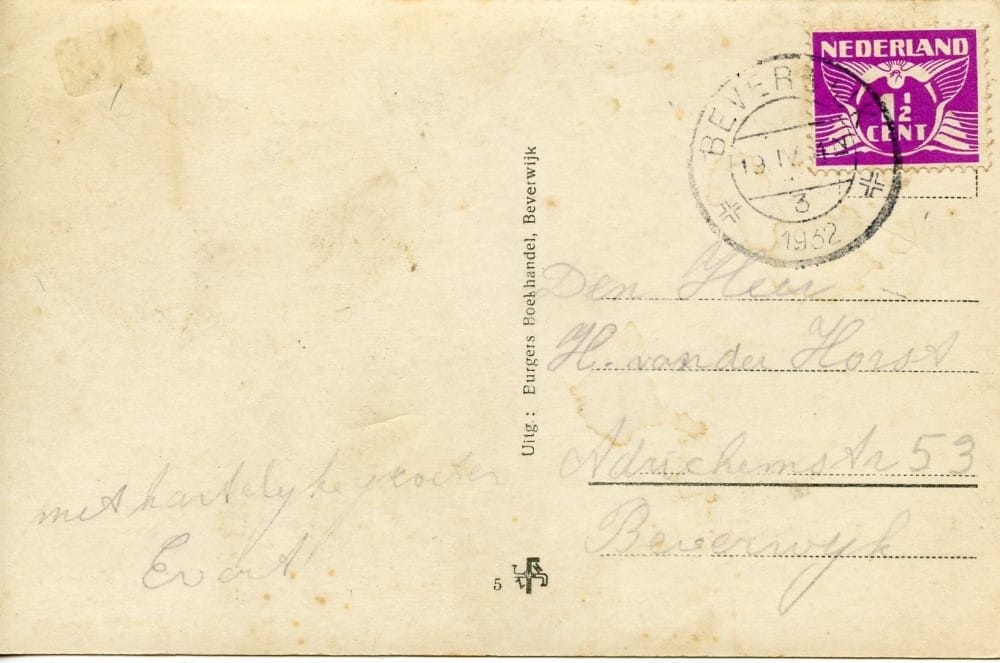 NEDERLAND
1½
CENT
BEVER
19 IV
3
1932
Uitg : Burgers Boekhandel, Beverwijk
Den Heer
H. van der Horst
Adrichemstr 53
Beverwyk
met hartelyke groeten
Evert
5